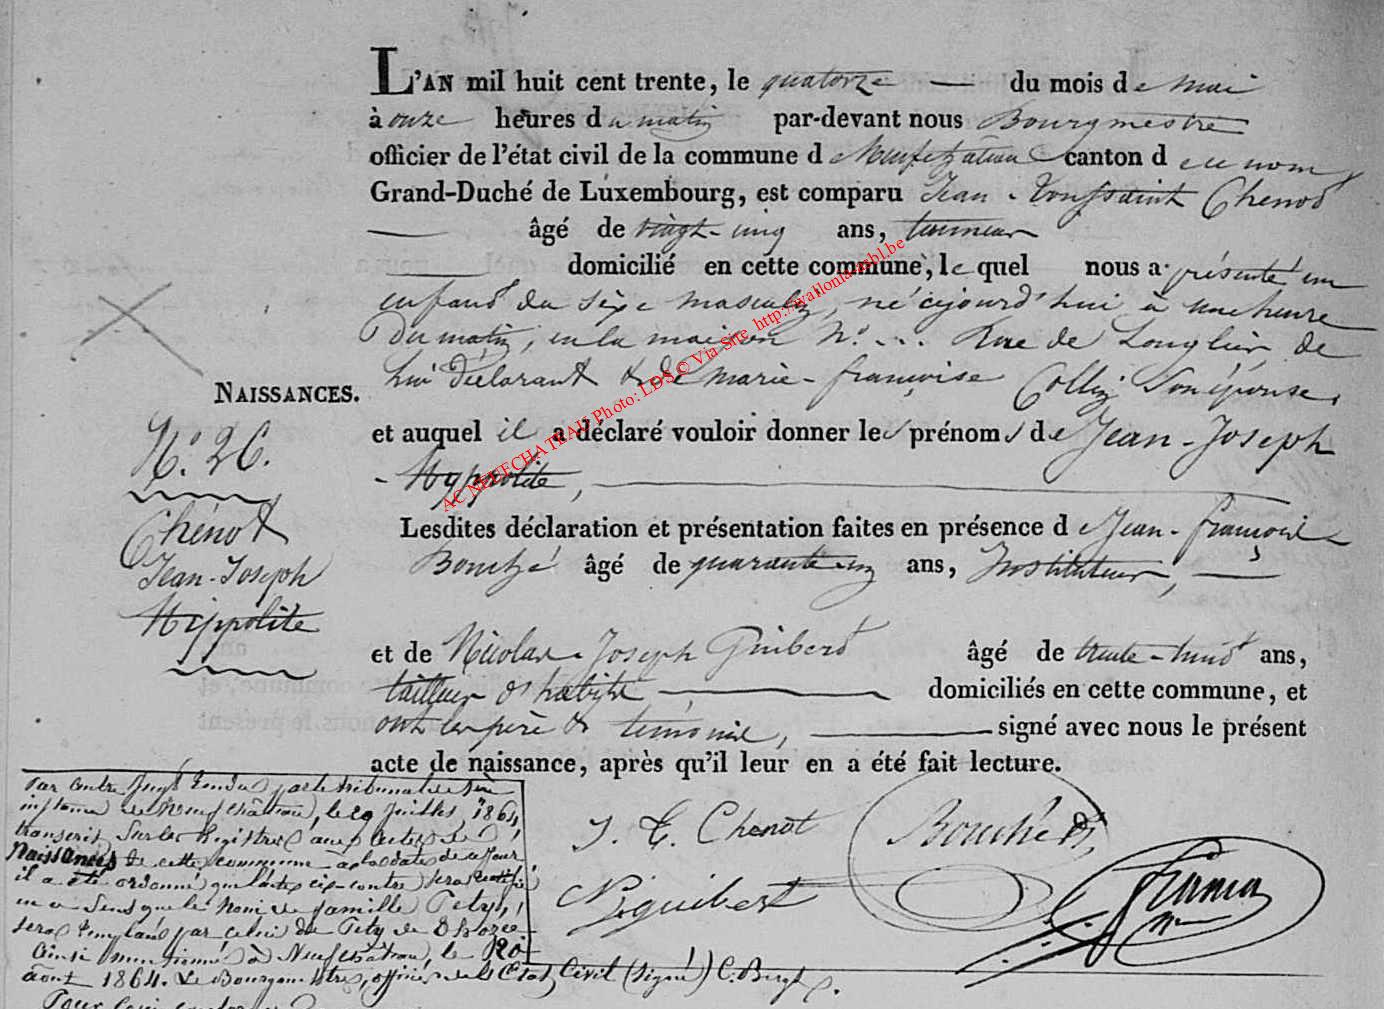 L'AN mil huit cent trente, le quatorze du mois de Mai
à onze heures du matin par-devant nous Bourgmestre
officier de l'état civil de la commune de Neufchâteau canton de ce nom
Grand-Duché de Luxembourg, est comparu Jean-Toussaint Chenot
âgé de vingt-cinq ans, tanneur
domicilié en cette commune, lequel nous a présenté un
enfant du sèxe masculin, né cejourd'hui à une heure
Du matin, en la maison N.° ... Rue de Longlier, de
lui Déclarant & de Marie-françoise Collin Son épouse,
NAISSANCES.
et auquel il a déclaré vouloir donner les prénoms de Jean-Joseph
- Hyppolite,
N.° 26.
Chénot
Jean-Joseph
Hippolite
Lesdites déclaration et présentation faites en présence de Jean-françois
Bouché âgé de quarante-un ans, Instituteur,
et de Nicolas-Joseph Guibert âgé de trente-huit ans,
tailleur d'habits, domiciliés en cette commune, et
ont les père & témoins, signé avec nous le présent
acte de naissance, après qu'il leur en a été fait lecture.
J. T. Chenot Bouché
N. J. Guibert
Par Jugt Rendu par le tribunal de 1ère
instance de Neufchâteau, le 29 Juillet 1864,
transcrit Sur les Registres aux Actes de
Naissances de cette commune à la date de ce Jour
il a été ordonné que l'acte ci-contre sera rectifié
en ce Sens que le Nom de famille Pety,
sera remplacé par celui de Pety de Thozée
Ainsi mentionné à Neufchâteau, le 20
août 1864. Le Bourgmestre, officier de l'Etat Civil (signé) C. Bergh
Pour
AC NEUFCHATEAU Photo: LDS © Via Site http://wallonia-asbl.be